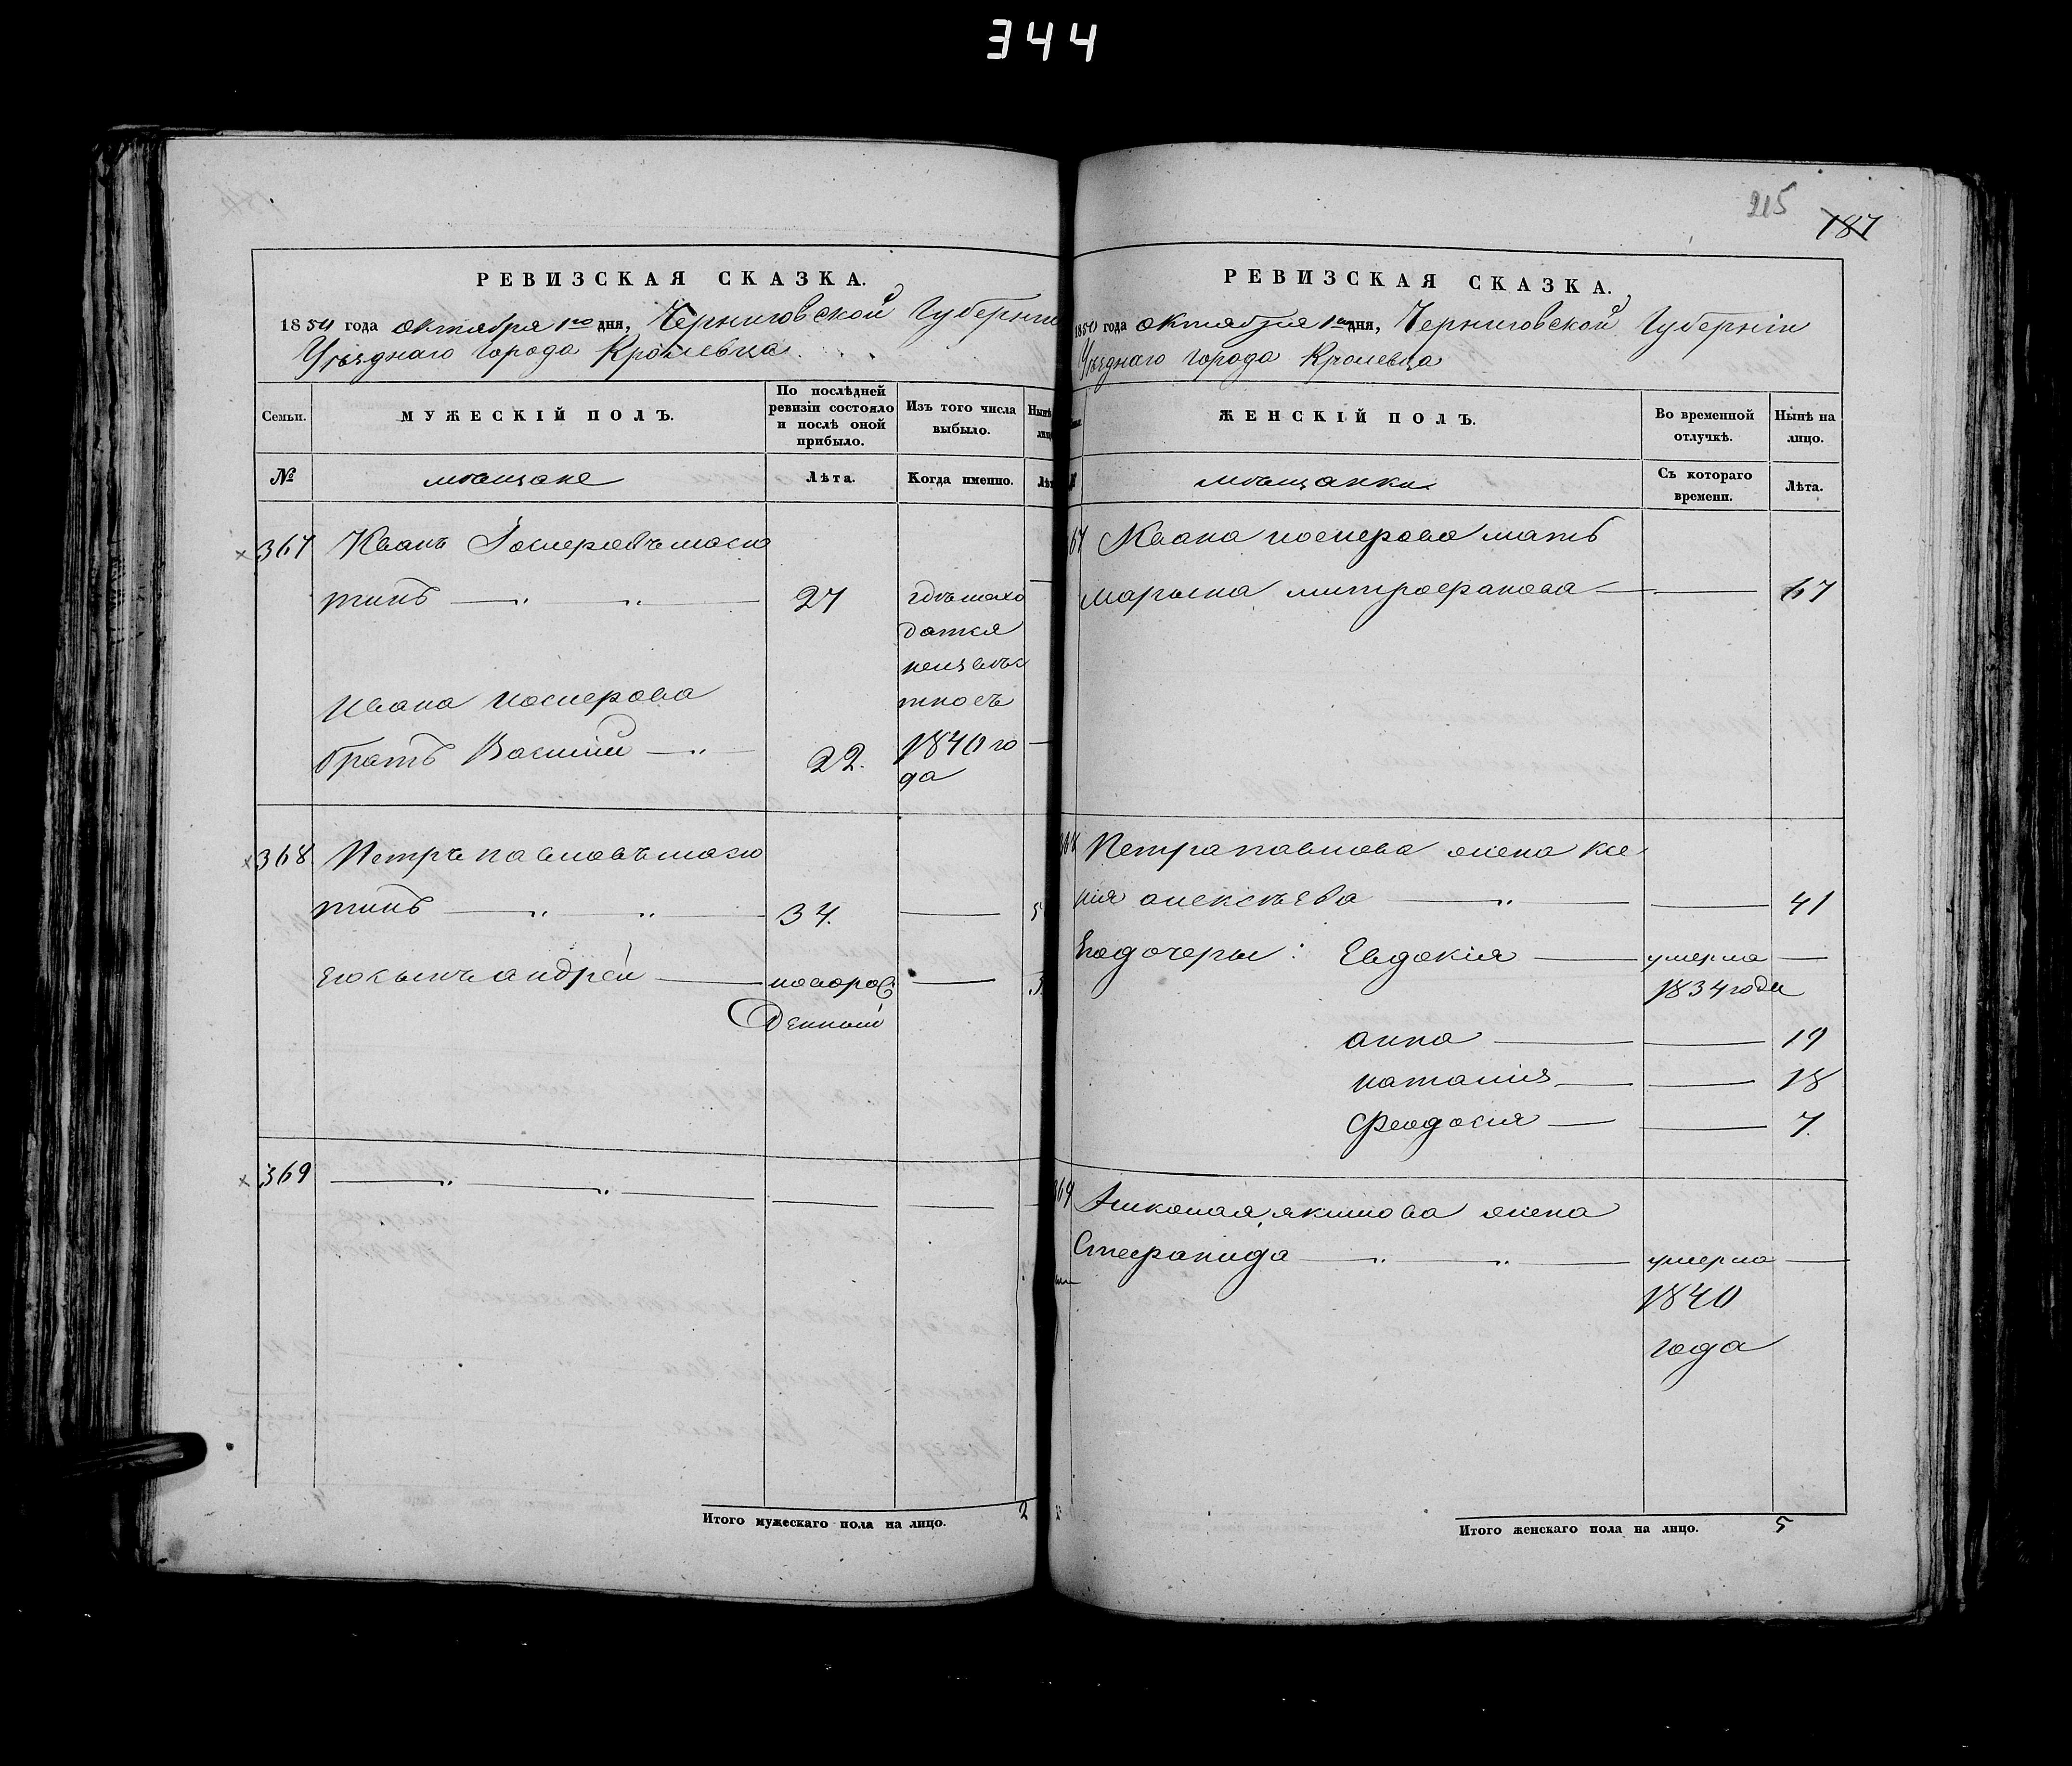 344
РЕВИЗСКАЯ СКАЗКА.
1854 года октября 1го дня, Черниговской Губерніи
Уѣзднаго города Кролевца
Семьи.
МУЖЕСКІЙ ПОЛЪ.
По послѣдней ревизіи состояло и послѣ оной прибыло.
Изъ того числа выбыло.
Нынѣ
лицо
№
мѣщане
Лѣта.
Когда именно.
Лѣт
367 Иванъ
тинъ 27
Ивана
братъ Василій 22. 1840 го
да
368 Петръ Павловъ
тинъ 34. 5
Его сынъ андрей новорож
денный
369
Итого мужескаго пола на лицо. 2
215
187
РЕВИЗСКАЯ СКАЗКА.
1850 года октября 1го дня, Черниговской Губерніи
Уѣзднаго города Кролевца
ЖЕНСКІЙ ПОЛЪ.
Во временной отлучкѣ.
Нынѣ на лицо.
мѣщанки
Съ котораго времени.
Лѣта.
67 Ивана мать
марьяна митрофанова 67
Петра павлова жена ксе
нія алексѣева 41
Его дочеры: Евдокія умерла
1834 года
анна 19
наталия 18
Феодосия 7.
369 Николая якимова жена
Стефанида умерла
1840
года
Итого женскаго пола на лицо. 5